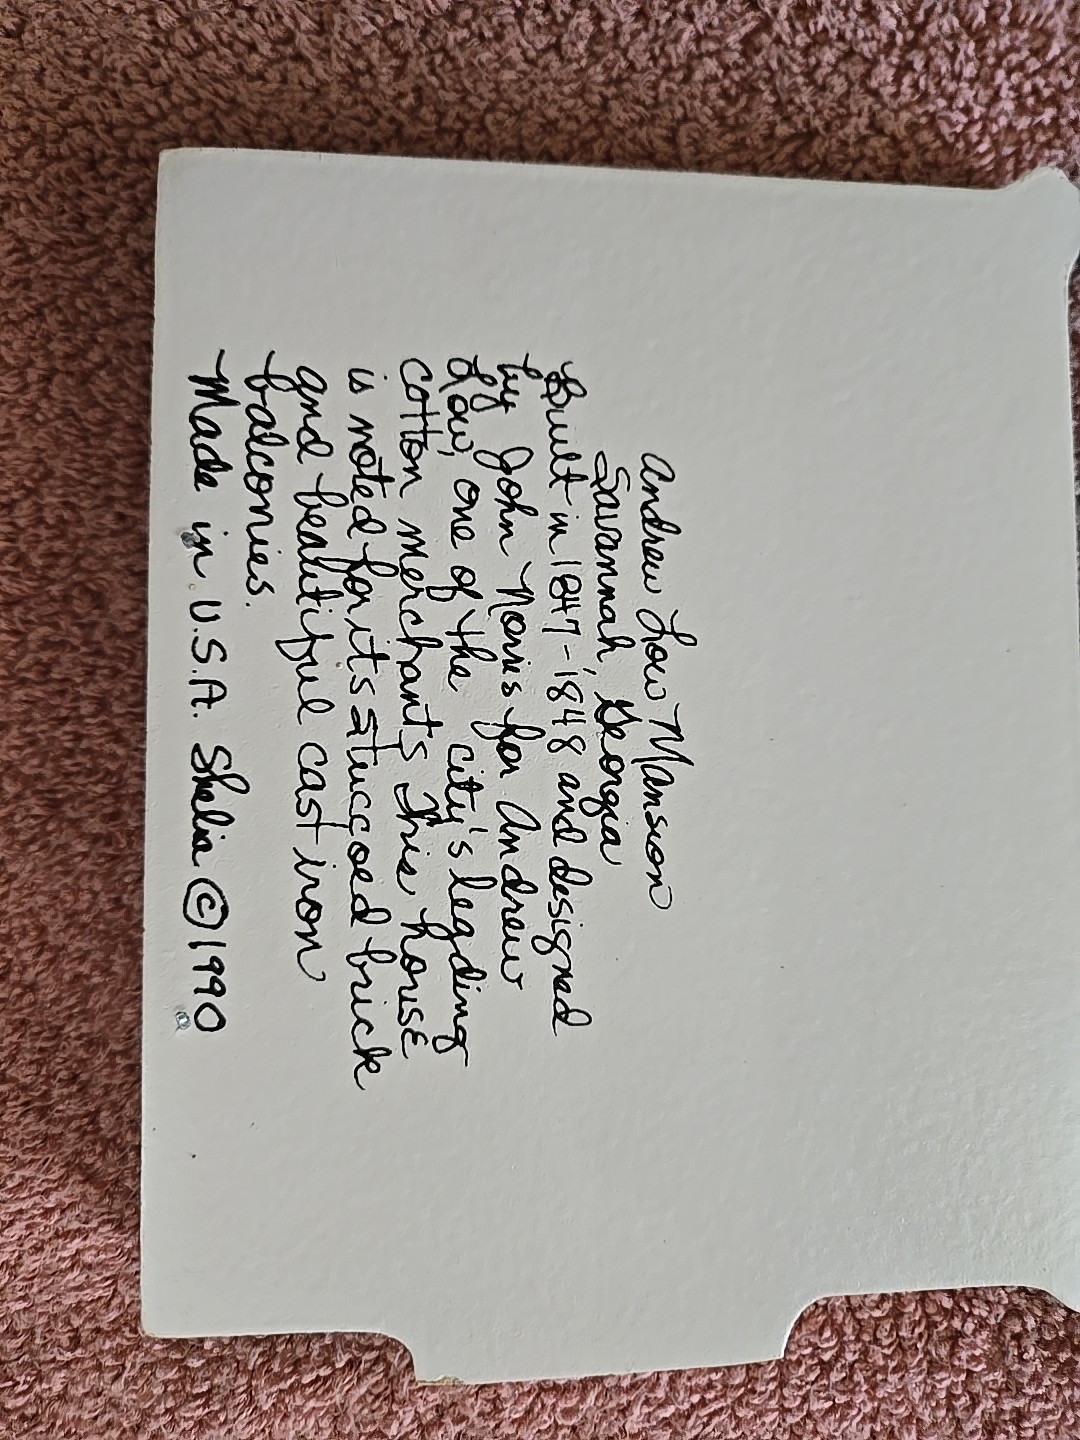 Andrew Low Mansion
Savannah, Georgia
Built in 1847-1848 and designed
by John Norris for Andrew
Low, one of the city's leading
cotton merchants This house
is noted for its stuccoed brick
and beautiful cast iron
balconies.
Made in U.S.A. Shelia © 1990